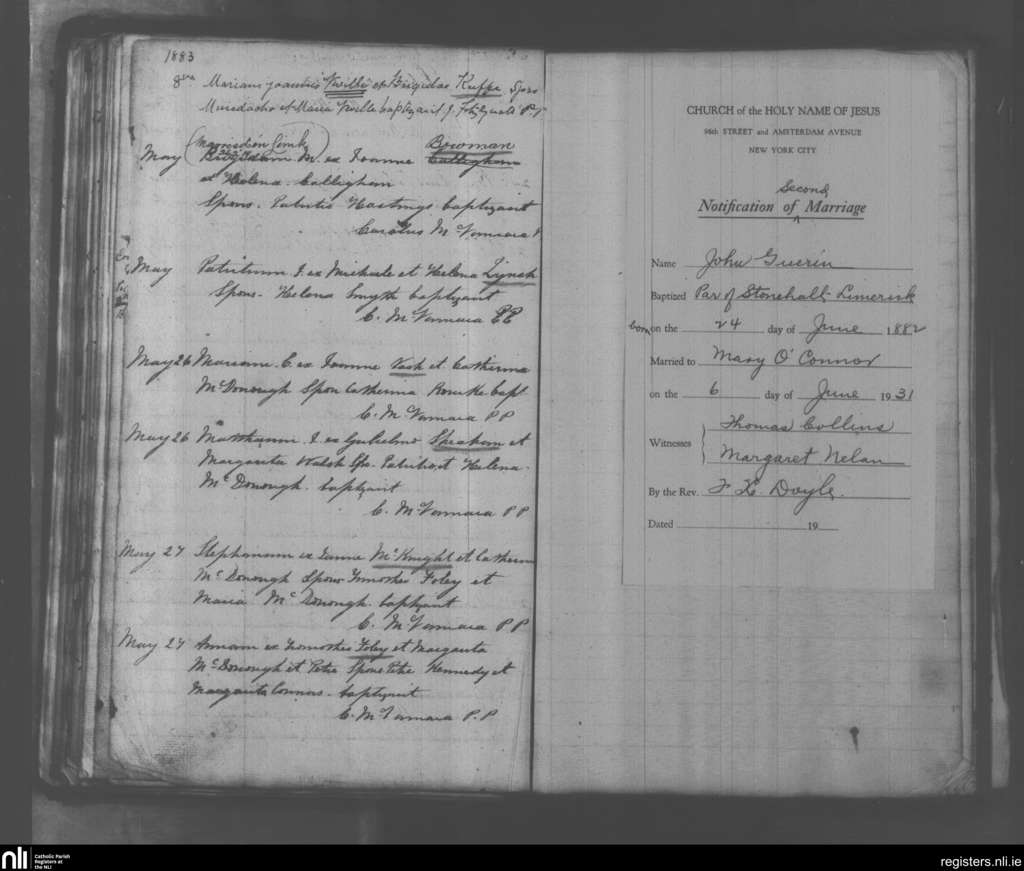 1883
8va Mariam Joannis Neville et Brigidae Keeffe Spons
Murdacho et Maria Neville baptizavit J. Fitzgerald P.P
Bowman
May M. ex Joanne Callighan
et Helena Callighan
Spons. Patritio Hastings baptizavit
Carolus McNamara
May Patritium J. ex Michaele et Helena Lynch
Spons. Helena Smyth baptizavit
C. McNamara PP
May 26 Mariam C. ex Joanne Nash et Catherina
McDonough Spon Catherina Rourke bapt
C. McNamara PP
May 26 Matthaeum J. ex Gulielmo Sheahan et
Margarita Walsh Sps. Patritio et Helena
McDonough. baptizavit
C. McNamara PP
May 27 Stephanum ex Jacobo McKnight et Catherina
McDonough Spons Timotheo Foley et
Maria McDonough. baptizavit
C. McNamara PP
May 27 Annam ex Timotheo Foley et Margarita
McDonough et Petro Spons Petro Kennedy et
Margarita Connors. baptizavit
C. McNamara P.P
CHURCH of the HOLY NAME OF JESUS
96th STREET and AMSTERDAM AVENUE
NEW YORK CITY
Second
Notification of Marriage
Name John Guerin
Baptized Par of Stonehall-Limerick
born on the 24 day of June 1882
Married to Mary O'Connor
on the 6 day of June 1931
Thomas Collins
Witnesses
Margaret Nelan
By the Rev. Doyle.
Dated 19
nli
Catholic Parish
Registers at
the NLI
registers.nli.ie